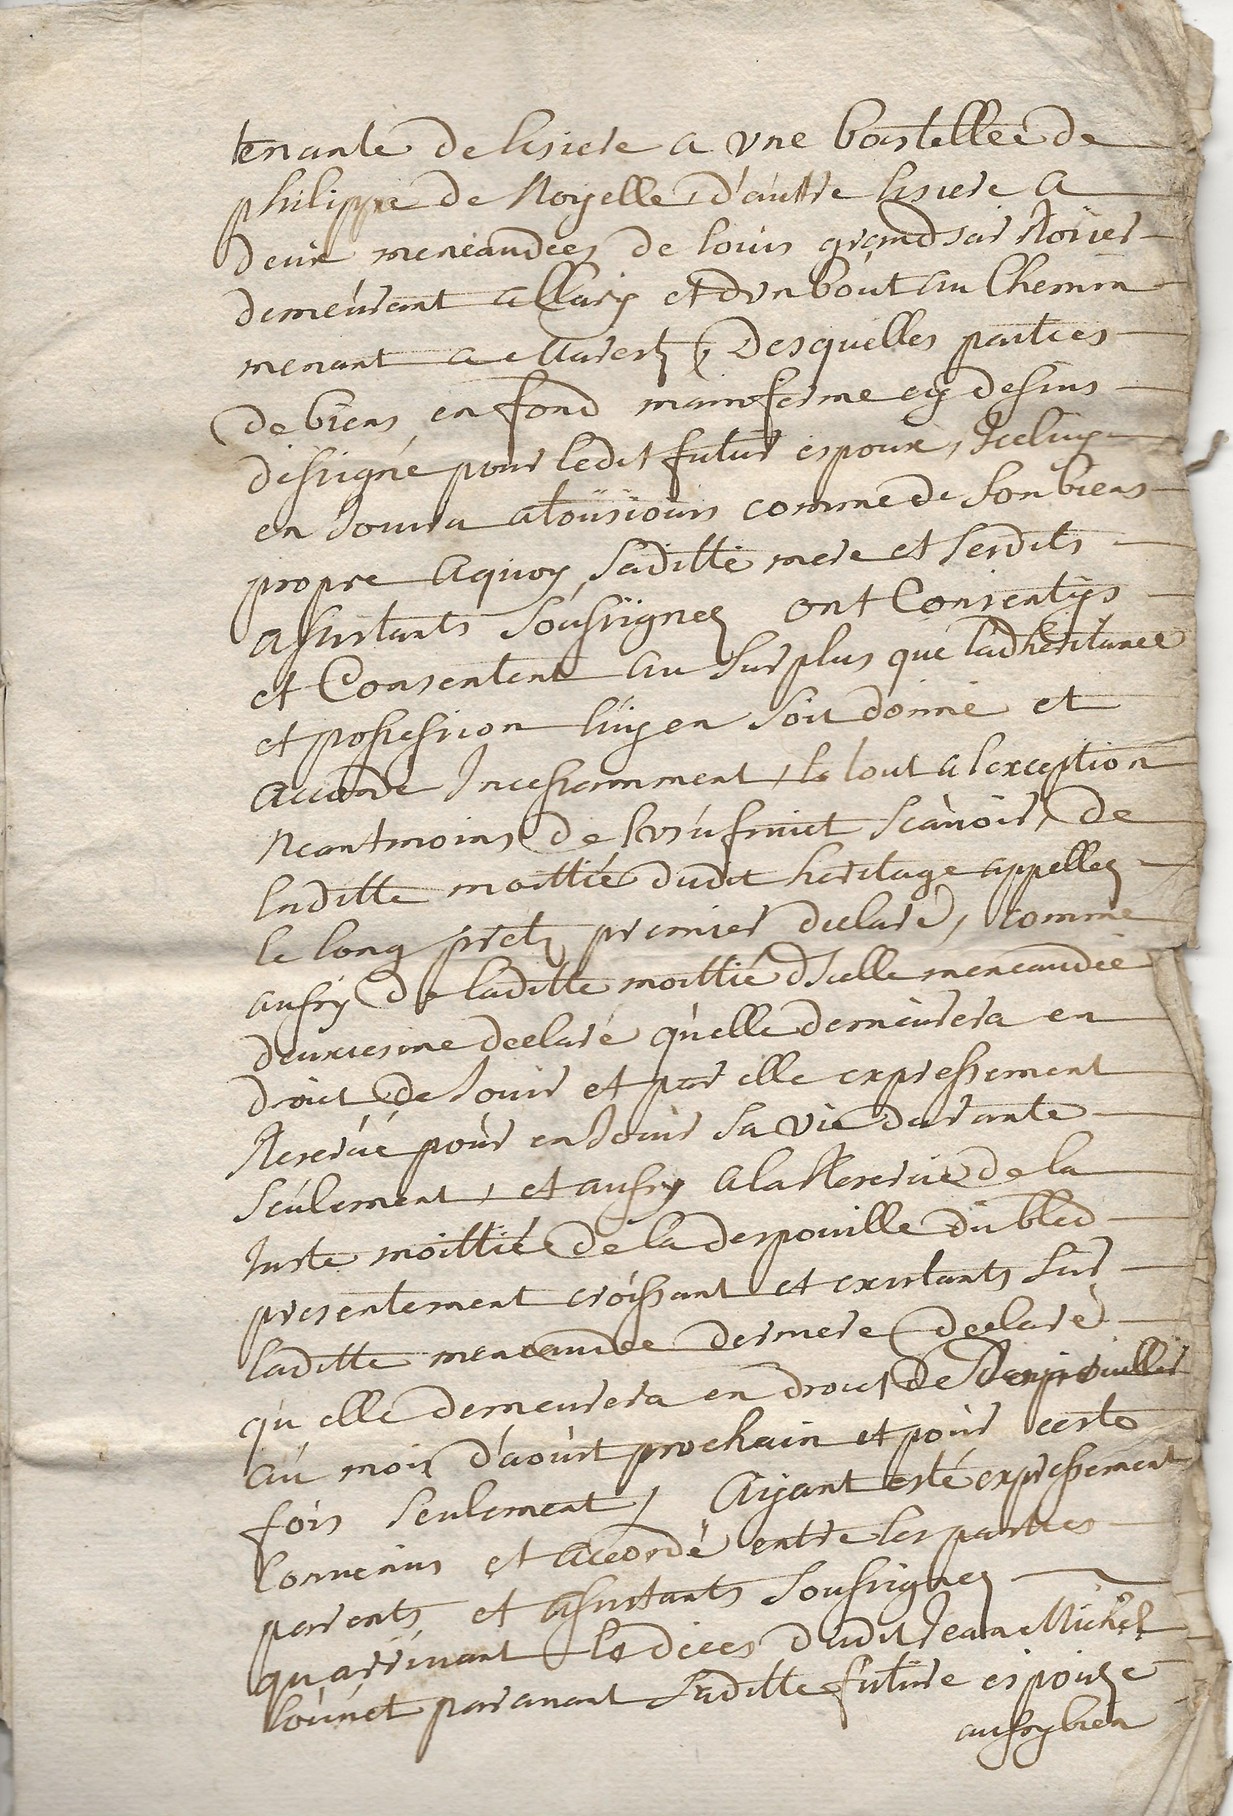 tenante de lisiere a une boistellée de
philippe de Noyelle, d'autre lisiere a
deux mencaudées de louis grandsar Roüier
demeurant a Clary et d'un bout au Chemin
menant a Maretz, Desquelles parties
de biens en fond mainferme cy dessus
dessigné pour ledit futur espoux, Iceluy
en Jouira atousiours comme de son biens
propre aquoy saditte mere et sesdits
assistants soussignez ont Consentys
et Consentent au surplus que l'adheritance
et possession luy en soit donné et
accordé Incessamment, le tout a lexception
neantmoins de lusufruict scavoir, de
laditte moittié dudit heritage appellez
le long pretz premier declaré, comme
aussy de laditte moittié d'Icelle mencaudée
deuxiesme declaré qu'elle demeurera en
droict de Jouir et par elle expressement
Reservé pour en Jouir sa vie durante
seulement, et aussy a la Reserve de la
Juste moittié de la despouille du bled
presentement croissant et existants sur
laditte mencaudée derniere declaré
qu'elle demeurera en droict de despouiller
au mois d'aoust prochain et pour ceste
fois seulement, Ayant esté expressement
Convenus et accordé entre les parties
parents et assistants soussignez
qu'arrivant le déces dudit Jean Michel
Loünet paravant laditte future espouse
aussy bien